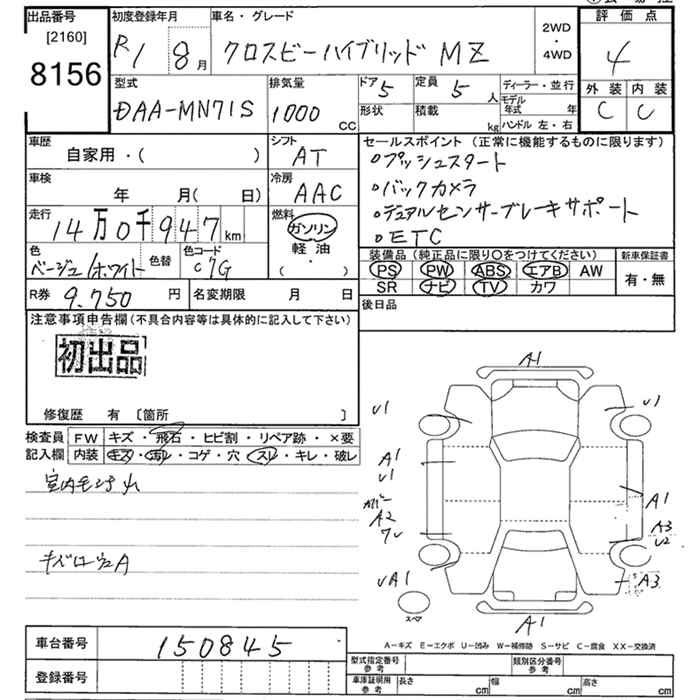 出品番号
[2160]
8156
初度登録年月
R1 8月
車名・グレード
クロスビーハイブリッド MZ
2WD
・
4WD
評価点
4
外装 内装
C C
型式
DAA-MN71S
排気量
1000 cc
ドア 5
定員 5 人
形状
積載 kg
ディーラー・並行
モデル年式 年
ハンドル 左・右
車歴
自家用・( )
シフト
AT
車検
年 月( 日)
冷房
AAC
走行
14万0千947km
燃料
ガソリン
軽油
( ・ )
色
ベージュ/ホワイト
色替
色コード
C7G
R券 9.750 円
名変期限 月 日
セールスポイント(正常に機能するものに限ります)
◦プッシュスタート
◦バックカメラ
◦デュアルセンサーブレーキサポート
◦ETC
装備品(純正品に限り○をつけてください)
PS PW ABS エアB AW
SR ナビ TV カワ
新車保証書
有・無
後日品
注意事項申告欄(不具合内容等は具体的に記入して下さい)
初出品
修復歴 有〔箇所 〕
検査員記入欄
FW キズ・飛石・ヒビ割・リペア跡・×要
内装 キズ・汚レ・コゲ・穴・スレ・キレ・破レ
A1
U1
U1
A1
U1
A2
A1
A3
U2
UA1
A3
スペア
A1
A−キズ E−エクボ U−凹み W−補修跡 S−サビ C−腐食 XX−交換済
車台番号 150845
登録番号
型式指定番号 参考
類別区分番号 参考
車庫証明用 参考
長さ cm
幅 cm
高さ cm